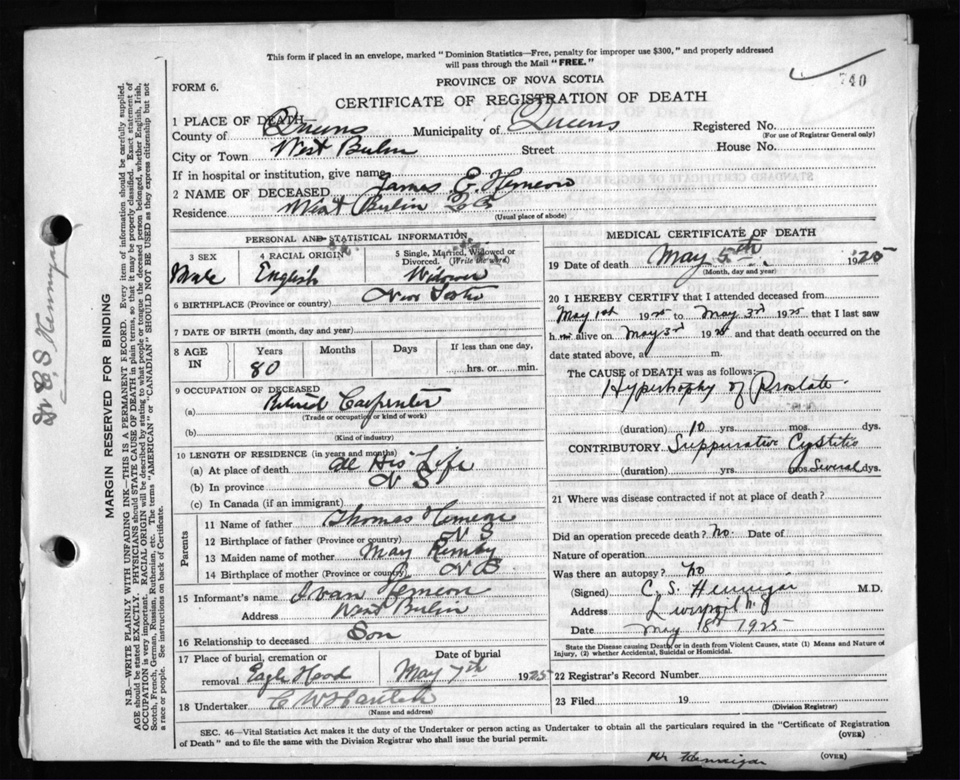 This form if placed in an envelope, marked "Dominion Statistics—Free, penalty for improper use $300," and properly addressed
will pass through the Mail "FREE."
740
FORM 6.
PROVINCE OF NOVA SCOTIA
CERTIFICATE OF REGISTRATION OF DEATH
1 PLACE OF DEATH—
County of Queens Municipality of Queens Registered No.
(For use of Registrar General only)
City or Town West Street House No.
If in hospital or institution, give name
2 NAME OF DECEASED James E Hemeon
Residence West
(Usual place of abode)
PERSONAL AND STATISTICAL INFORMATION
3 SEX 4 RACIAL ORIGIN 5 Single, Married, Widowed or
Divorced. (Write the word)
Male English Widower
6 BIRTHPLACE (Province or country)
7 DATE OF BIRTH (month, day and year)
8 AGE IN Years Months Days If less than one day,
80 hrs. or min.
9 OCCUPATION OF DECEASED
(a) Retired Carpenter
(Trade or occupation or kind of work)
(b)
(Kind of industry)
10 LENGTH OF RESIDENCE (in years and months)
(a) At place of death all His Life
(b) In province N S
(c) In Canada (if an immigrant)
Parents
11 Name of father Thomas
12 Birthplace of father (Province or country) N S
13 Maiden name of mother May
14 Birthplace of mother (Province or country)
15 Informant's name Ivan Hemeon
Address West
16 Relationship to deceased Son
17 Place of burial, cremation or Date of burial
removal Eagle Head May 7th 1925
18 Undertaker C W
(Name and address)
MEDICAL CERTIFICATE OF DEATH
19 Date of death May 5th 1925
(Month, day and year)
20 I HEREBY CERTIFY that I attended deceased from
May 1st 1925 to May 3rd 1925 that I last saw
h im alive on May 3rd 1925 and that death occurred on the
date stated above, a m.
The CAUSE of DEATH was as follows:
Hypertrophy of Prostate
(duration) 10 yrs. mos. dys.
CONTRIBUTORY Suppurative Cystitis
(duration) yrs. mos. Several dys.
21 Where was disease contracted if not at place of death?
Did an operation precede death? No. Date of
Nature of operation
Was there an autopsy? No
(Signed) C. S. Hennigar M.D.
Address Liverpool
Date May 18th 1925
State the Disease causing Death, or in death from Violent Causes, state (1) Means and Nature of
Injury, (2) whether Accidental, Suicidal or Homicidal.
22 Registrar's Record Number
23 Filed 19
(Division Registrar)
SEC. 46—Vital Statistics Act makes it the duty of the Undertaker or person acting as Undertaker to obtain all the particulars required in the "Certificate of Registration
of Death" and to file the same with the Division Registrar who shall issue the burial permit. (OVER)
Dr Hennigar (OVER)
Dr C S Hennigar
MARGIN RESERVED FOR BINDING
N.B.—WRITE PLAINLY WITH UNFADING INK—THIS IS A PERMANENT RECORD. Every item of information should be carefully supplied.
AGE should be stated EXACTLY. PHYSICIANS should STATE CAUSE OF DEATH in plain terms, so that it may be properly classified. Exact statement of
OCCUPATION is very important. RACIAL ORIGIN will be described by stating to what people or tongue the deceased person belonged, whether English, Irish,
Scotch, French, German, Russian, Ruthenian, etc. The terms "AMERICAN" or "CANADIAN" SHOULD NOT BE USED as they express citizenship but not
a race or people. See instructions on back of Certificate.